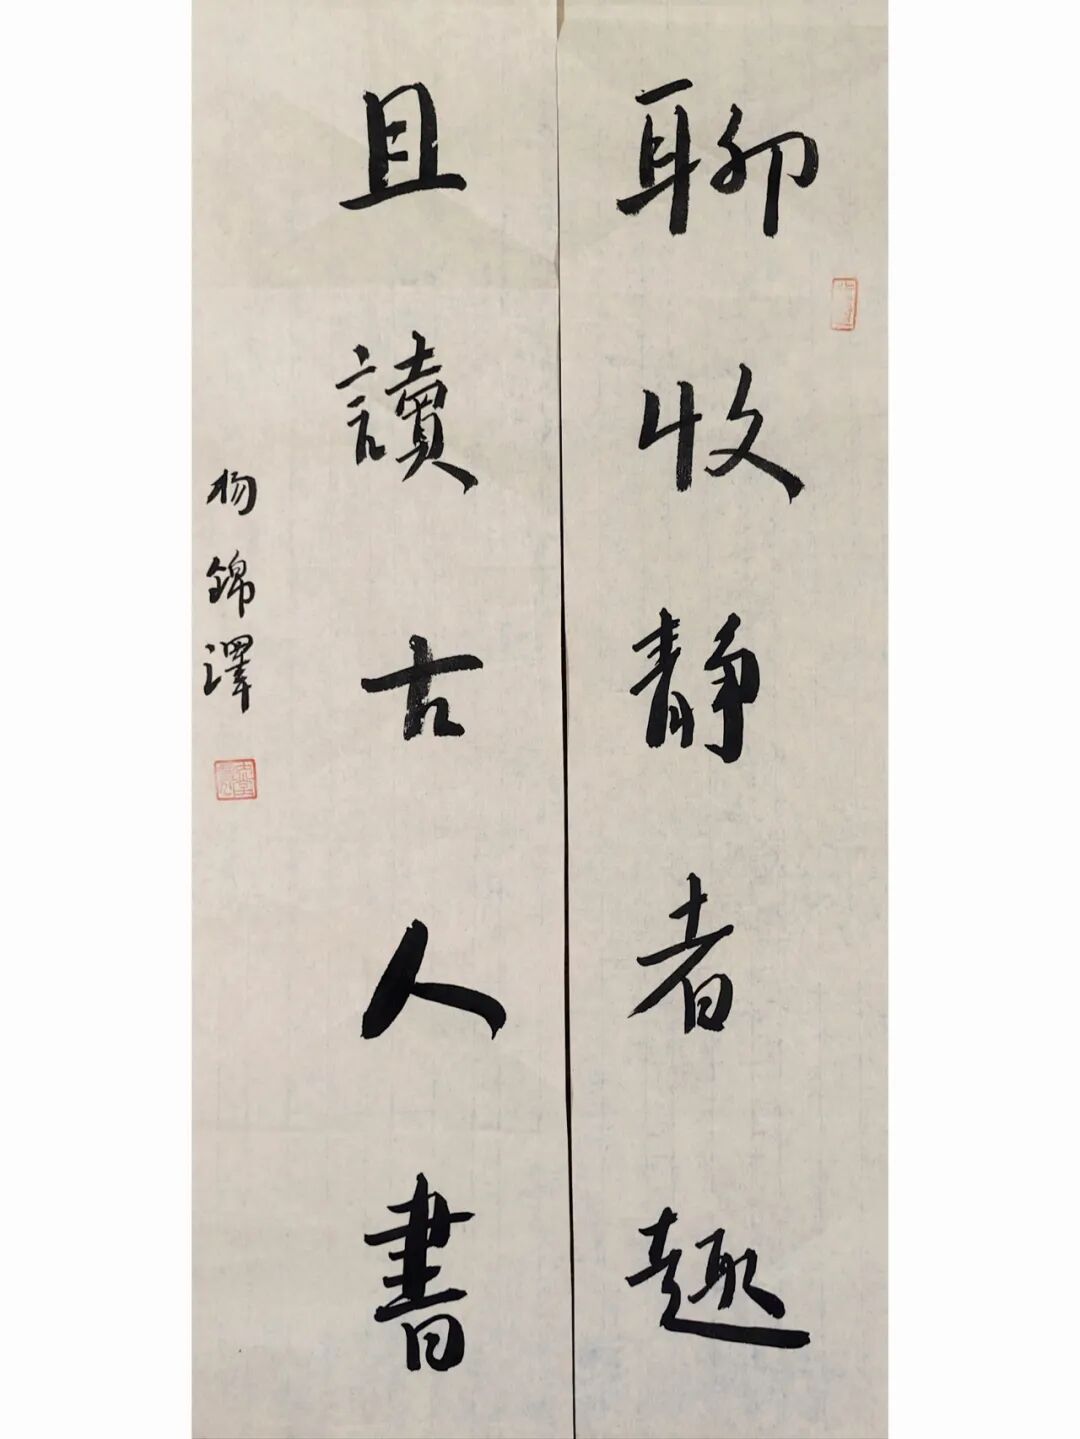 聊收靜者趣
且讀古人書
杨錦澤